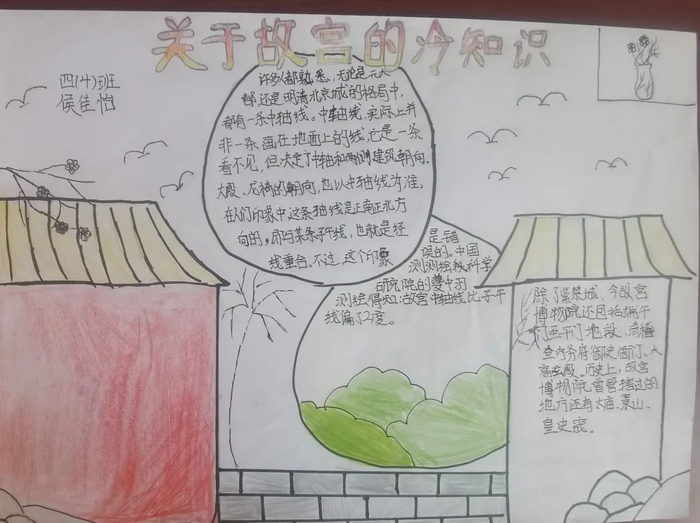 关于故宫的冷知识
四(十)班
侯佳怡
许多人都熟悉,无论是元大
都,还是明清北京城的格局中,
都有一条中轴线。中轴线,实际上并
非一条画在地面上的线,它是一条
看不见,但决定了中轴和两侧建筑朝向,
大殿、龙椅的朝向,也以中轴线为准。
在人们印象中这条轴线是正南正北方
向的,即与某条子午线,也就是经
线重合。不过,这个印象
是错
误的。中国
测测绘核科学
研究院的夔中羽
测绘得知:故宫中轴线比子午
线偏了2度。
除了紫禁城,今故宫
博物院还包括端午
门至午门地段、
查内务府御史衙门、大
高玄殿。历史上,故宫
博物院曾管辖过的
地方还有太庙、景山、
皇史宬。